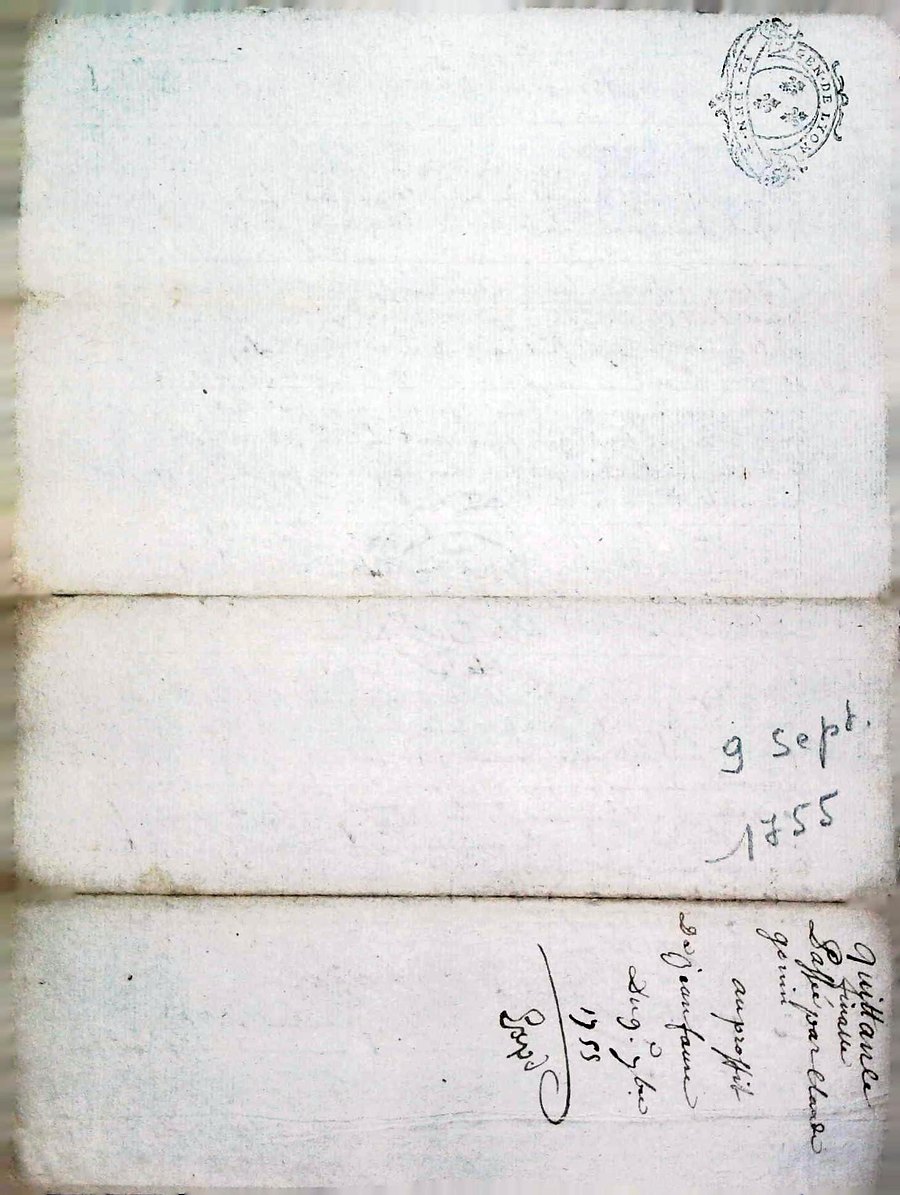 GEN. DE LYON
9 sept.
1755
Quittance
finale
Passée par Claude
genin
au proffit
De Jean faure
Du 9e 7bre
1755